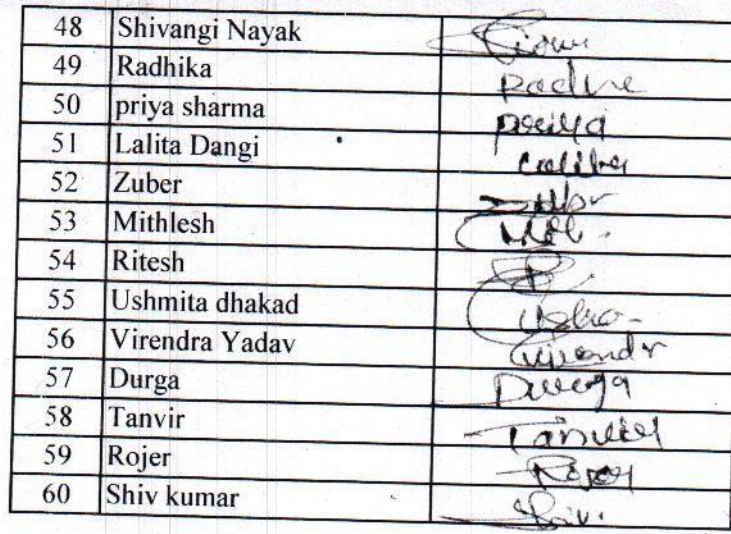 48 Shivangi Nayak
49 Radhika
50 priya sharma priya
51 Lalita Dangi Lalita
52 Zuber
53 Mithlesh
54 Ritesh
55 Ushmita dhakad
56 Virendra Yadav Virendr
57 Durga Durga
58 Tanvir Tanvir
59 Rojer Rojer
60 Shiv kumar Shiv.